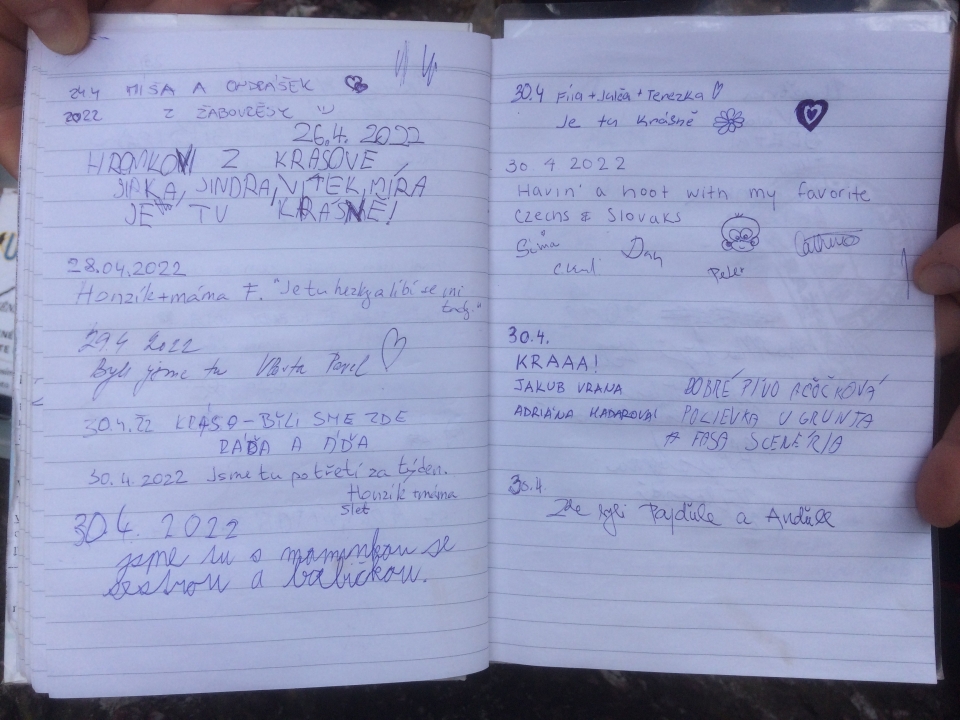 24.4 MÍŠA A ONDRÁŠEK
2022 Z ŽABOVŘESY
26.4. 2022
HROMKOVI Z KRASOVE
JIRKA, JINDRA, VÍTEK, MÍRA
JE TU KRÁSNĚ!
28.04.2022
Honzík+máma F. "Je tu hezky a líbí se mi
tady."
29.4 2022
Byli jsme tu Marta Pavel
30.4.22 KRÁSA - BYLI SME ZDE
RÁĎA A
30.4.2022 Jsme tu potřetí za týden.
Honzík+máma
30.4. 2022
jsme tu s maminkou se
sestrou a babičkou.
30.4 Fíla + Julča + Terezka
Je tu krásně
30 4 2022
Havin' a hoot with my favorite
Czechs & Slovaks
Sima Dan
Peter
30.4.
KRAAA!
JAKUB VRANA DOBRÉ PIVO
ADRIÁNA POLIEVKA U GRUNTA
A FASA SCENÉRIA
30.4.
Zde byli Pajďule a Anďule